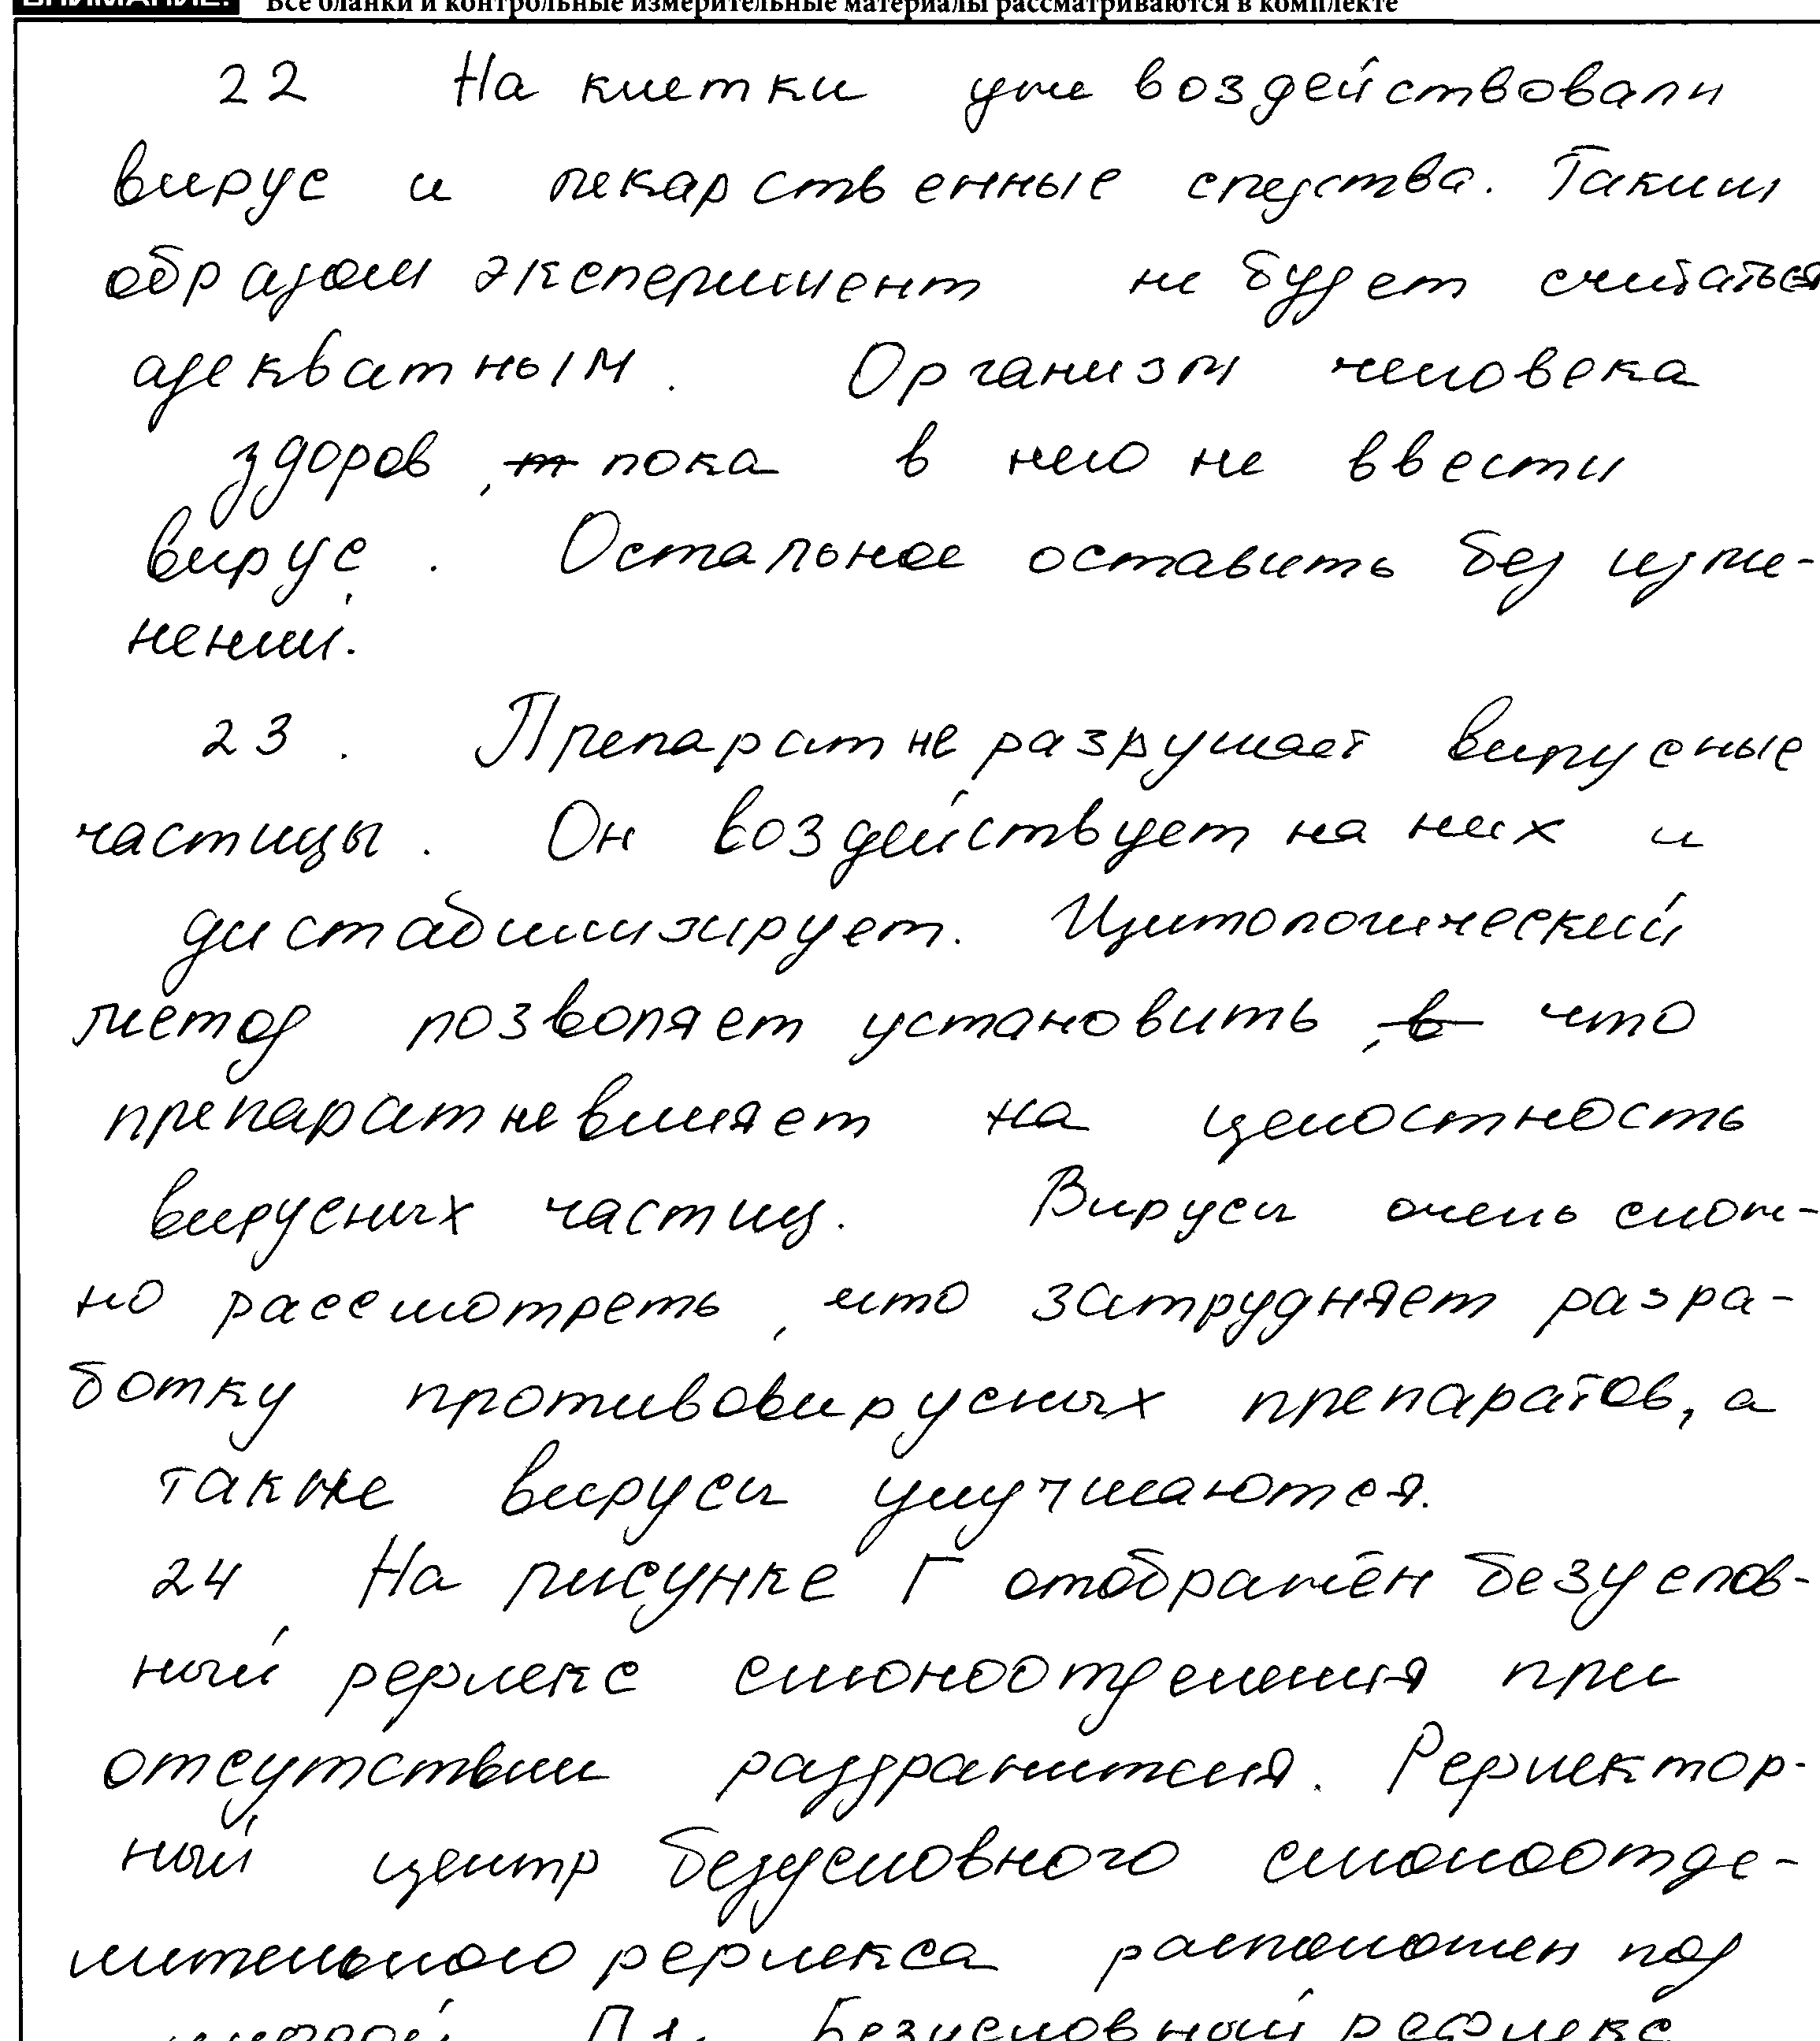 ВНИМАНИЕ! Все бланки и контрольные измерительные материалы рассматриваются в комплекте
22 На клетки уже воздействовали
вирус и лекарственные средства. Таким
образом эксперимент не будет считаться
адекватным. Организм человека
здоров, пока в него не ввести
вирус. Остальное оставить без изме-
нений.
23. Препарат не разрушает вирусные
частицы. Он воздействует на них и
дистабилизирует. Цитологический
метод позволяет установить, что
препарат не влияет на целостность
вирусных частиц. Вирусы очень слож-
но рассмотреть, что затрудняет разра-
ботку противовирусных препаратов, а
также вирусы улучшаются.
24 На рисунке Г отображён безуслов-
ный рефлекс слюноотделения при
отсутствии раздражителя. Рефлектор-
ный центр безусловного слюноотде-
лительного рефлекса расположен под
цифрой П1. Безусловный рефлекс